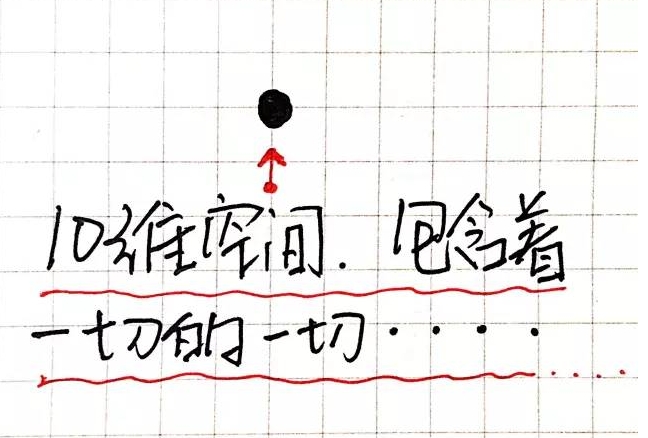 10维空间. 包含着
一切的一切·····